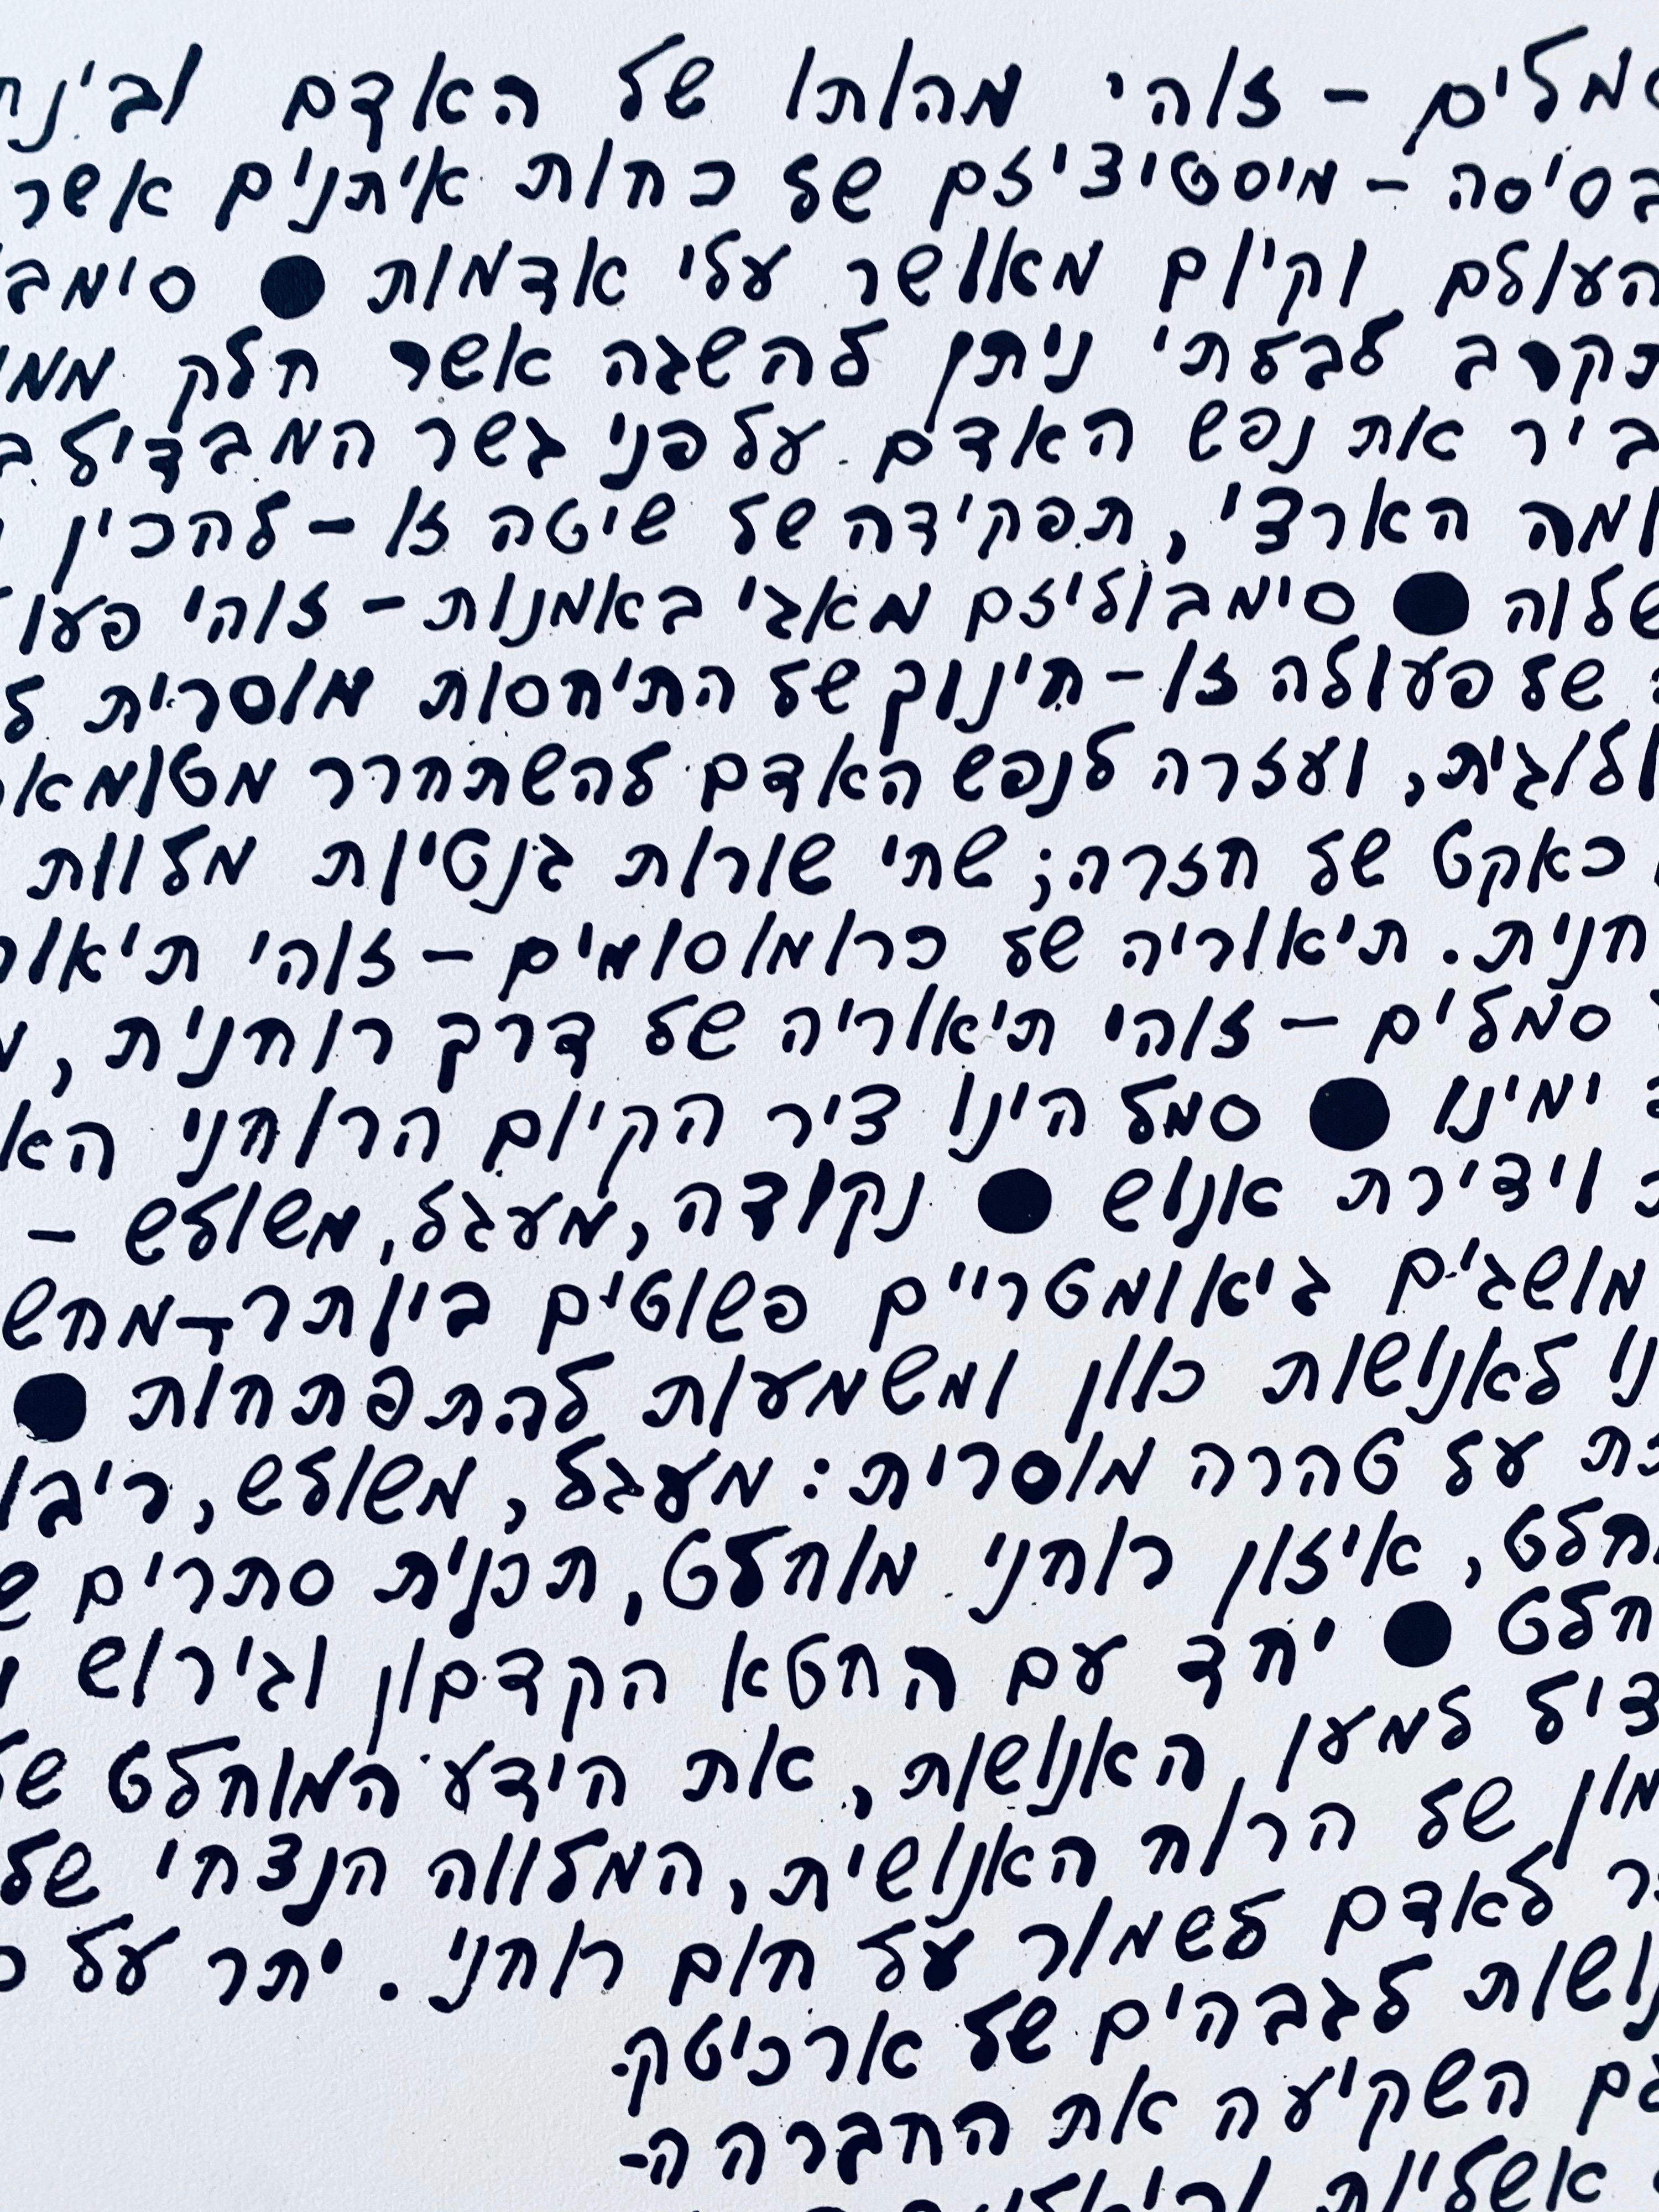 סמלים – זוהי מהותו של האדם ובינת
בסיסה – מיסטיציזם של כחות איתנים אשר
העולם וקיום מאושר עלי אדמות ● סימב
תקרב לבלתי ניתן להשגה אשר חלק ממ
ביר את נפש האדם על פני גשר המבדיל ב
ומה הארצי, תפקידה של שיטה זו – להכין
שלוה ● סימבוליזם מאגי באמנות – זוהי פעו
של פעולה זו – חינוך של התיחסות מוסרית ל
ולוגית, ועזרה לנפש האדם להשתחרר מטומא
כאקט של חזרה; שתי שורות גנטיות מלוות
חנית. תיאוריה של כרומוסומים – זוהי תיאור
סמלים – זוהי תיאוריה של דרך רוחנית,
ימינו ● סמל הינו ציר הקיום הרוחני הא
וידירת אנוש ● נקודה, מעגל, משולש –
מושגים גיאומטריים פשוטים ביותר – מחש
נו לאנושות כוון ומשמעות להתפתחות ●
כת על טהרה מוסרית: מעגל, משולש, ריבו
חלט, איזון רוחני מוחלט, תכנית סתרים ש
חלט ● יחד עם החטא הקדמון וגירוש
ציל למען האנושות, את הידע המוחלט של
מון של הרוח האנושית, המלווה הנצחי של
ר לאדם לשמור על חום רוחני. יתר על כ
נושות לגבהים של ארכיטק-
גם השקיעה את החברה ה-
אשליות